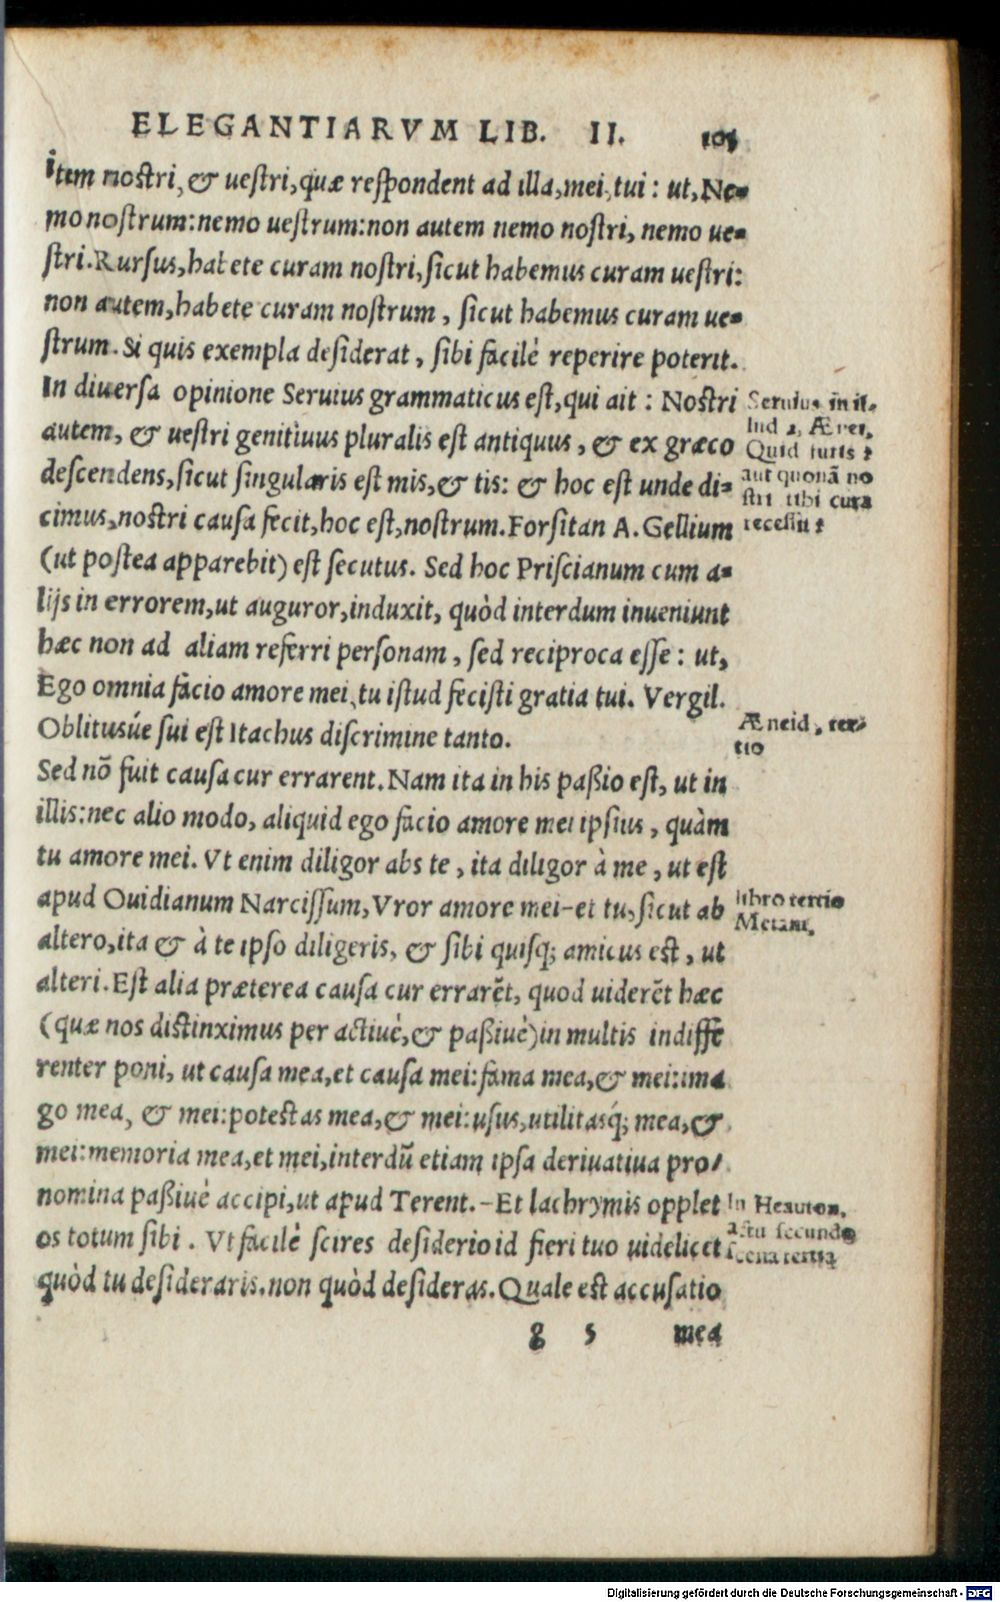 ELEGANTIARVM LIB. II. 105
Item nostri, & uestri, quæ respondent ad illa, mei, tui: ut, Ne-
mo nostrum: nemo uestrum: non autem nemo nostri, nemo ue-
stri. Rursus, habete curam nostri, sicut habemus curam uestri:
non autem, habete curam nostrum, sicut habemus curam ue-
strum. Si quis exempla desiderat, sibi facilè reperire poterit.
In diuersa opinione Seruius grammaticus est, qui ait: Nostri
Seruius in il-
autem, & uestri genitiuus pluralis est antiquus, & ex græco
lud 2, Æ nei,
Quid iuris ?
descendens, sicut singularis est mis, & tis: & hoc est unde di-
aut quonã no
stri tibi cura
cimus, nostri causa fecit, hoc est, nostrum. Forsitan A. Gellium
recessit ?
(ut postea apparebit) est secutus. Sed hoc Priscianum cum a-
lijs in errorem, ut auguror, induxit, quòd interdum inueniunt
hæc non ad aliam referri personam, sed reciproca esse: ut,
Ego omnia facio amore mei, tu istud fecisti gratia tui. Vergil.
Oblitusúe sui est Itachus discrimine tanto.
Æneid, ter-
tio
Sed nõ fuit causa cur errarent. Nam ita in his paßio est, ut in
illis: nec alio modo, aliquid ego facio amore mei ipsius, quàm
tu amore mei. Vt enim diligor abs te, ita diligor à me, ut est
apud Ouidianum Narcissum, Vror amore mei-et tu, sicut ab
libro tertio
Metam,
altero, ita & à te ipso diligeris, & sibi quisq; amicus est, ut
alteri. Est alia præterea causa cur errarẽt, quod uiderẽt hæc
(quæ nos distinximus per actiuè, & paßiuè) in multis indiffe
renter poni, ut causa mea, et causa mei: fama mea, & mei: ima
go mea, & mei: potestas mea, & mei: usus, utilitasq́; mea, &
mei: memoria mea, et mei, interdũ etiam ipsa deriuatiua pro/
nomina paßiuè accipi, ut apud Terent. -Et lachrymis opplet
In Heauton,
actu secundo
os totum sibi. Vt facilè scires desiderio id fieri tuo uidelicet
scena tertia
quòd tu desideraris, non quòd desideras. Quale est accusatio
g 5 mea
Digitalisierung gefördert durch die Deutsche Forschungsgemeinschaft - DFG